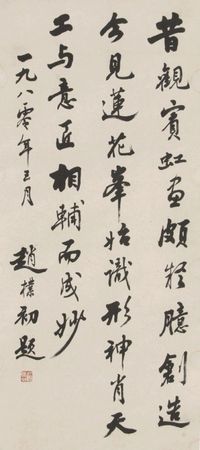 昔觀賓虹畫頗疑臆創造
今見蓮花峯始識形神肖天
工与意匠相輔而成妙
一九八零年五月
趙樸初題